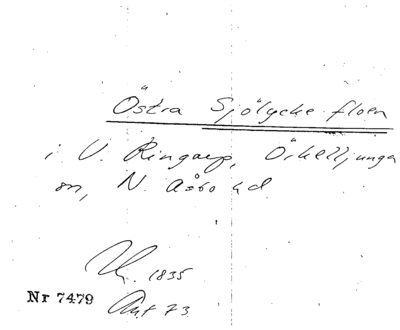 Östra Sjölycke floen
i V. Ringarp, Örkelljunga
sn, N. Åsbo hd
1835
Nr 7479 Akt 73